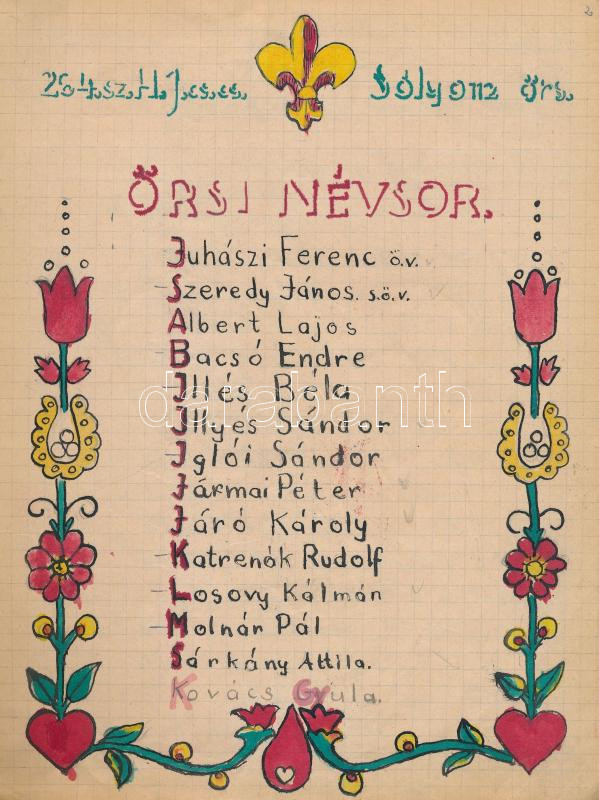 2
264.sz.H.J.cs.cs. Sólyom őrs.
ŐRSI NÉVSOR.
Juhászi Ferenc ö.v.
Szeredy János. s.ö.v.
Albert Lajos
Bacsó Endre
Illés Béla
Illyés Sándor
darabanth
Iglói Sándor
Jármai Péter
Járó Károly
Katrenák Rudolf
Losovy Kálmán
Molnár Pál
Sárkány Attila.
Kovács Gyula.